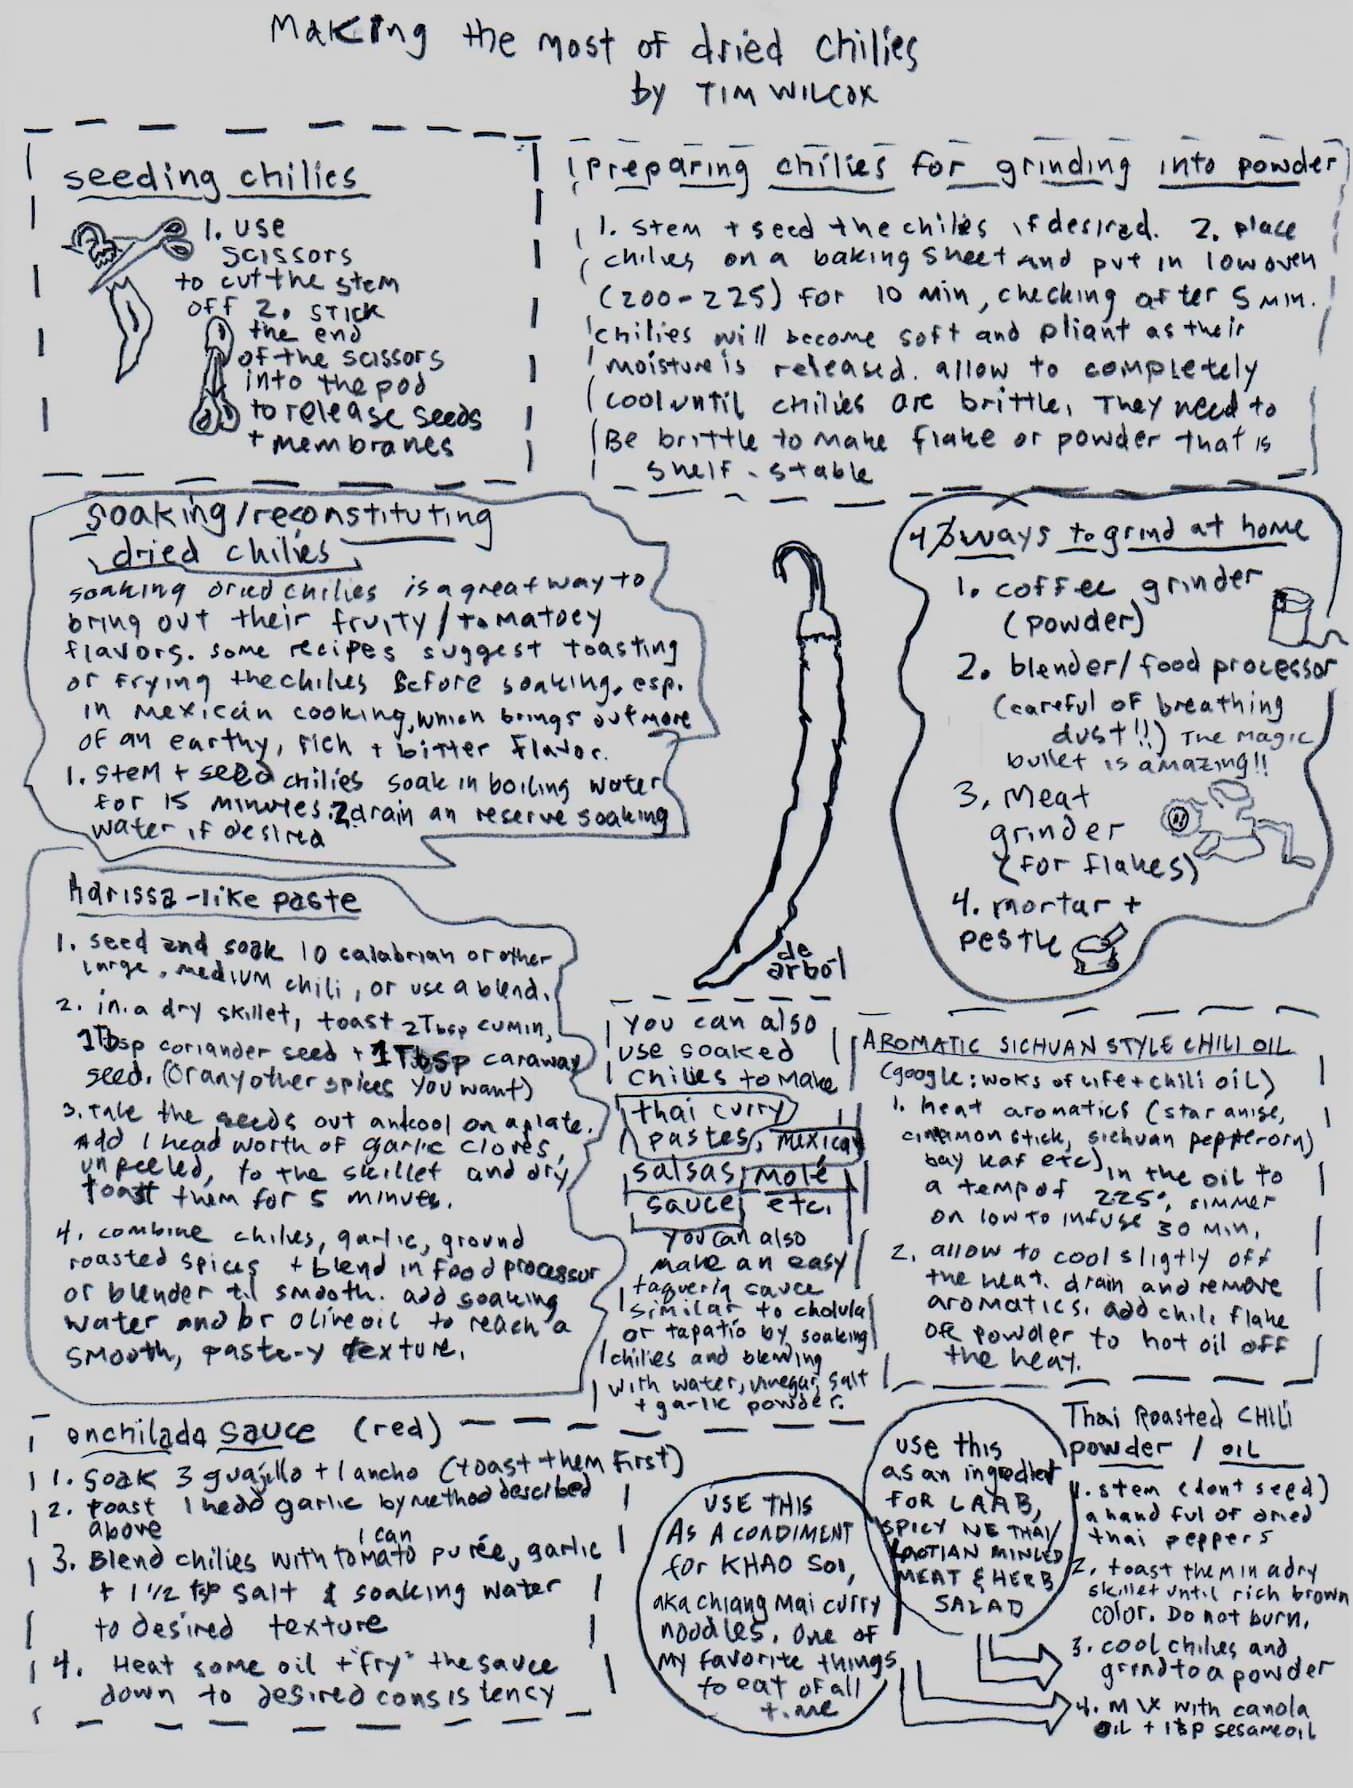 Making the most of dried chilies
by TIM WILCOX
seeding chilies
1. use
scissors
to cut the stem
off 2. stick
the end
of the scissors
into the pod
to release seeds
+ membranes
Preparing chilies for grinding into powder
1. stem + seed the chiles if desired. 2. place
chilies on a baking sheet and put in low oven
(200-225) for 10 min, checking after 5 min.
chilies will become soft and pliant as their
moisture is released. allow to completely
cool until chilies are brittle. They need to
Be brittle to make flake or powder that is
shelf-stable
soaking/reconstituting
dried chilies
soaking dried chilies is a great way to
bring out their fruity/tomatoey
flavors. some recipes suggest toasting
or frying the chilies Before soaking, esp.
in Mexican cooking, which brings out more
of an earthy, rich + bitter flavor.
1. stem + seed chilies soak in boiling water
for 15 minutes. 2. drain an reserve soaking
water if desired
4 ways to grind at home
1. coffee grinder
(powder)
2. blender/food processor
(careful of breathing
dust!!) The magic
bullet is amazing!!
3. meat
grinder
(for flakes)
4. mortar +
pestle
de
arbol
harissa-like paste
1. seed and soak 10 calabrian or other
large, medium chili, or use a blend.
2. in a dry skillet, toast 2 Tbsp cumin,
1 Tbsp coriander seed + 1 Tbsp caraway
seed. (or any other spices you want)
3. take the seeds out ancool on a plate.
Add 1 head worth of garlic cloves,
unpeeled, to the skillet and dry
toast them for 5 minutes.
4. combine chilies, garlic, ground
roasted spices + blend in food processor
or blender til smooth. add soaking
water and or olive oil to reach a
smooth, paste-y texture.
you can also
use soaked
chilies to make
thai curry
pastes, mexican
salsas, molé
sauce, etc.
you can also
make an easy
taqueria sauce
similar to cholula
or tapatio by soaking
chilies and blending
with water, vinegar, salt
+ garlic powder.
AROMATIC SICHUAN STYLE CHILI OIL
(google: woks of life + chili oil)
1. heat aromatics (star anise,
cinnamon stick, sichuan peppercorn)
bay leaf etc) in the oil to
a temp of 225°, simmer
on low to infuse 30 min.
2. allow to cool slightly off
the heat. drain and remove
aromatics. add chili flake
or powder to hot oil off
the heat.
enchilada sauce (red)
1. soak 3 guajillo + 1 ancho (toast them first)
2. toast 1 head garlic by method described
above
3. Blend chilies with 1 can tomato purée, garlic
+ 1 1/2 tsp salt & soaking water
to desired texture
4. Heat some oil + "fry" the sauce
down to desired consistency
USE THIS
AS A CONDIMENT
for KHAO SOI,
aka chiang Mai curry
noodles. One of
my favorite things
to eat of all
time
use this
as an ingredient
for LAAB,
SPICY NE THAI/
LAOTIAN MINCED
MEAT & HERB
SALAD
Thai Roasted CHILI
powder / OIL
1. stem (don't seed)
a handful of dried
thai peppers
2. toast them in a dry
skillet until rich brown
color. Do not burn.
3. cool chilies and
grind to a powder
4. mix with canola
oil + 1 tsp sesame oil